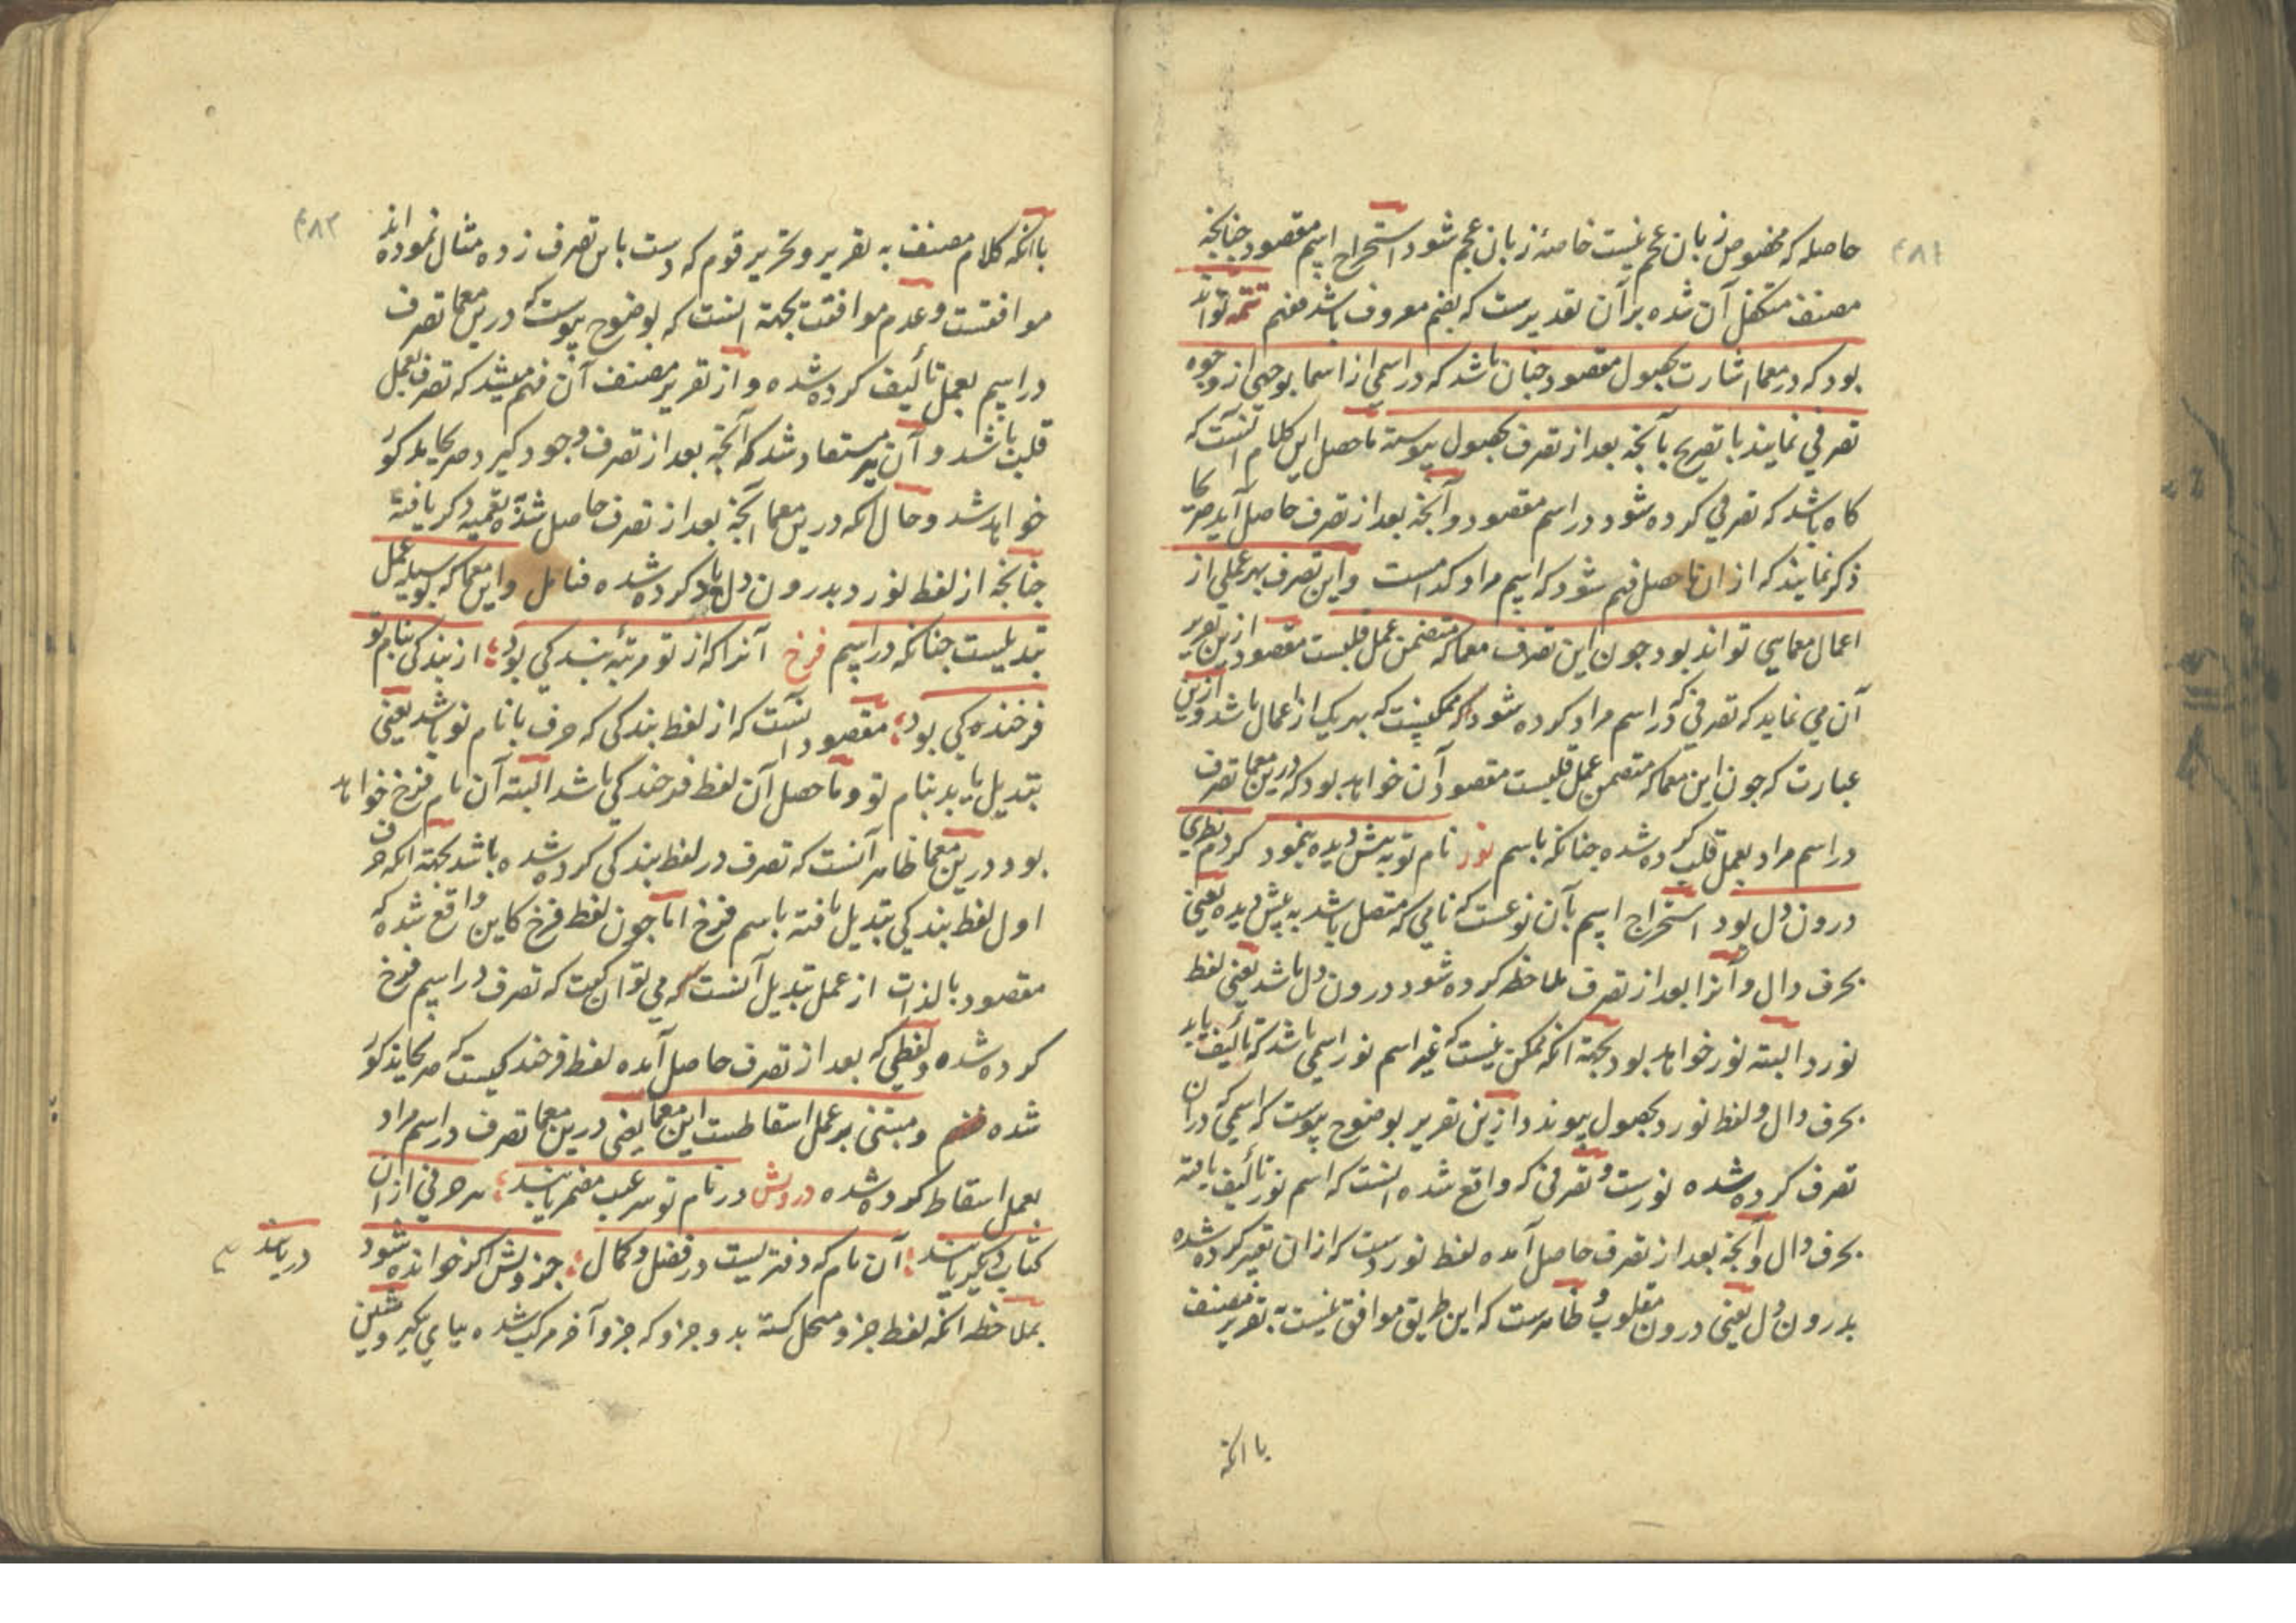 ۴۸۱
حاصله که مخصوص زبان عجم نیست خاصهٔ زبان عجم شود استخراج اسم مقصود چنانچه
مصنف متکفل آن شده بر آن تقدیرست که بضم معروف باشد تتمه تواند
بود که در معما اشارت بحصول مقصود چنان باشد که در اسمی از اسما بوجهی از وجوه
تصرفی نمایند با تصریح بآنچه بعد از تصرف بحصول پیوسته ماحصل این کلام آنست که
کاه باشد که تصرفی کرده شود در اسم مقصود و آنچه بعد از تصرف حاصل آید صریحا
ذکر نمایند که از ان ماحصل فهم شود که اسم مراد کدامست و این تصرف بهر عملی از
اعمال معمایی تواند بود چون این تصرف معما که متضمن عمل قلبست مقصود ازین تقریر
آن می نماید که تصرفی که در اسم مراد کرده شود ممکنست که بهر یک از اعمال باشد و ازین
عبارت که چون این معما که متضمن عمل قلبست مقصود آن خواهد بود که درین معما تصرف
در اسم مراد بعمل قلب کرده شده چنانکه باسم نور نام تو به پیش دیده بنمود کردم نظری
درون دل بود استخراج اسم بآن نوعست که نامی که متصل باشد به پیش دیده یعنی
بحرف دال و آنرا بعد از تصرف ملاحظه کرده شود درون دل باشد یعنی لفظ
نورد البته نور خواهد بود بجهة آنکه ممکن نیست که غیر اسم نور اسمی باشد که تألیف یابد
بحرف دال و لفظ نورد بحصول پیوندد ازین تقریر بوضوح پیوست که اسمی که در ان
تصرف کرده شده نورست و تصرفی که واقع شده آنست که اسم نور تألیف یافته
بحرف دال و آنچه بعد از تصرف حاصل آمده لفظ نوردست که از ان تعبیر کرده شده
بدرون دل یعنی درون مقلوب و ظاهرست که این طریق موافق نیست به تقریر مصنف
با انکه
۴۸۲
با انکه کلام مصنف به تقریر و تحریر قوم که دست باین تصرف زده مثال نموده اند
موافقست و عدم موافقت بجهة آنست که بوضوح پیوست که درین معما تصرف
در اسم بعمل تألیف کرده شده و از تقریر مصنف آن فهم میشد که تصرف بعمل
قلب باشد و آن نیز مستفاد شد که آنچه بعد از تصرف وجود کیرد صریحا مذکور
خواهد شد و حال آنکه درین معما آنچه بعد از تصرف حاصل شده بتعمیه ذکر یافته
چنانچه از لفظ نورد بدرون دل یاد کرده شده فتامل و این معما که بوسیله عمل
تبدیلست چنانکه در اسم فرخ آنرا که از تو مرتبهٔ بندکی بود؛ از بندکی بنام تو
فرخنده کی بود؛ مقصود آنست که از لفظ بندکی که حرف با نام تو باشد یعنی
تبدیل یابد بنام تو و ماحصل آن لفظ فرخندکی باشد البته آن نام فرخ خواهد
بود درین معما ظاهر آنست که تصرف در لفظ بندکی کرده شده باشد بجهة آنکه حرف
اول لفظ بندکی تبدیل یافته باسم فرخ اما چون لفظ فرخ کاین واقع شده که
مقصود بالذات از عمل تبدیل آنست که می توان کفت که تصرف در اسم فرخ
کرده شده و لفظی که بعد از تصرف حاصل آمده لفظ فرخندکیست که صریحا مذکور
شده و مبتنی بر عمل اسقاطست این معما یعنی درین معما تصرف در اسم مراد
بعمل اسقاط کرده شده درویش در نام تو سر غیب مضمر یابند؛ هر حرفی از ان
کتاب دیکر یابند؛ آن نام که دفتریست در فضل و کمال؛ جزویش اکر خوانده شود
دریابند
بملاحظه آنکه لفظ جزو منحل کشته بدو جزو که جزو آخر مرکب شده بیای تنکیر و شین